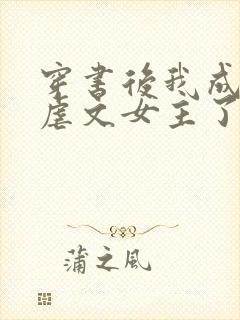 穿書後我成
虐文女主了
蒲之風